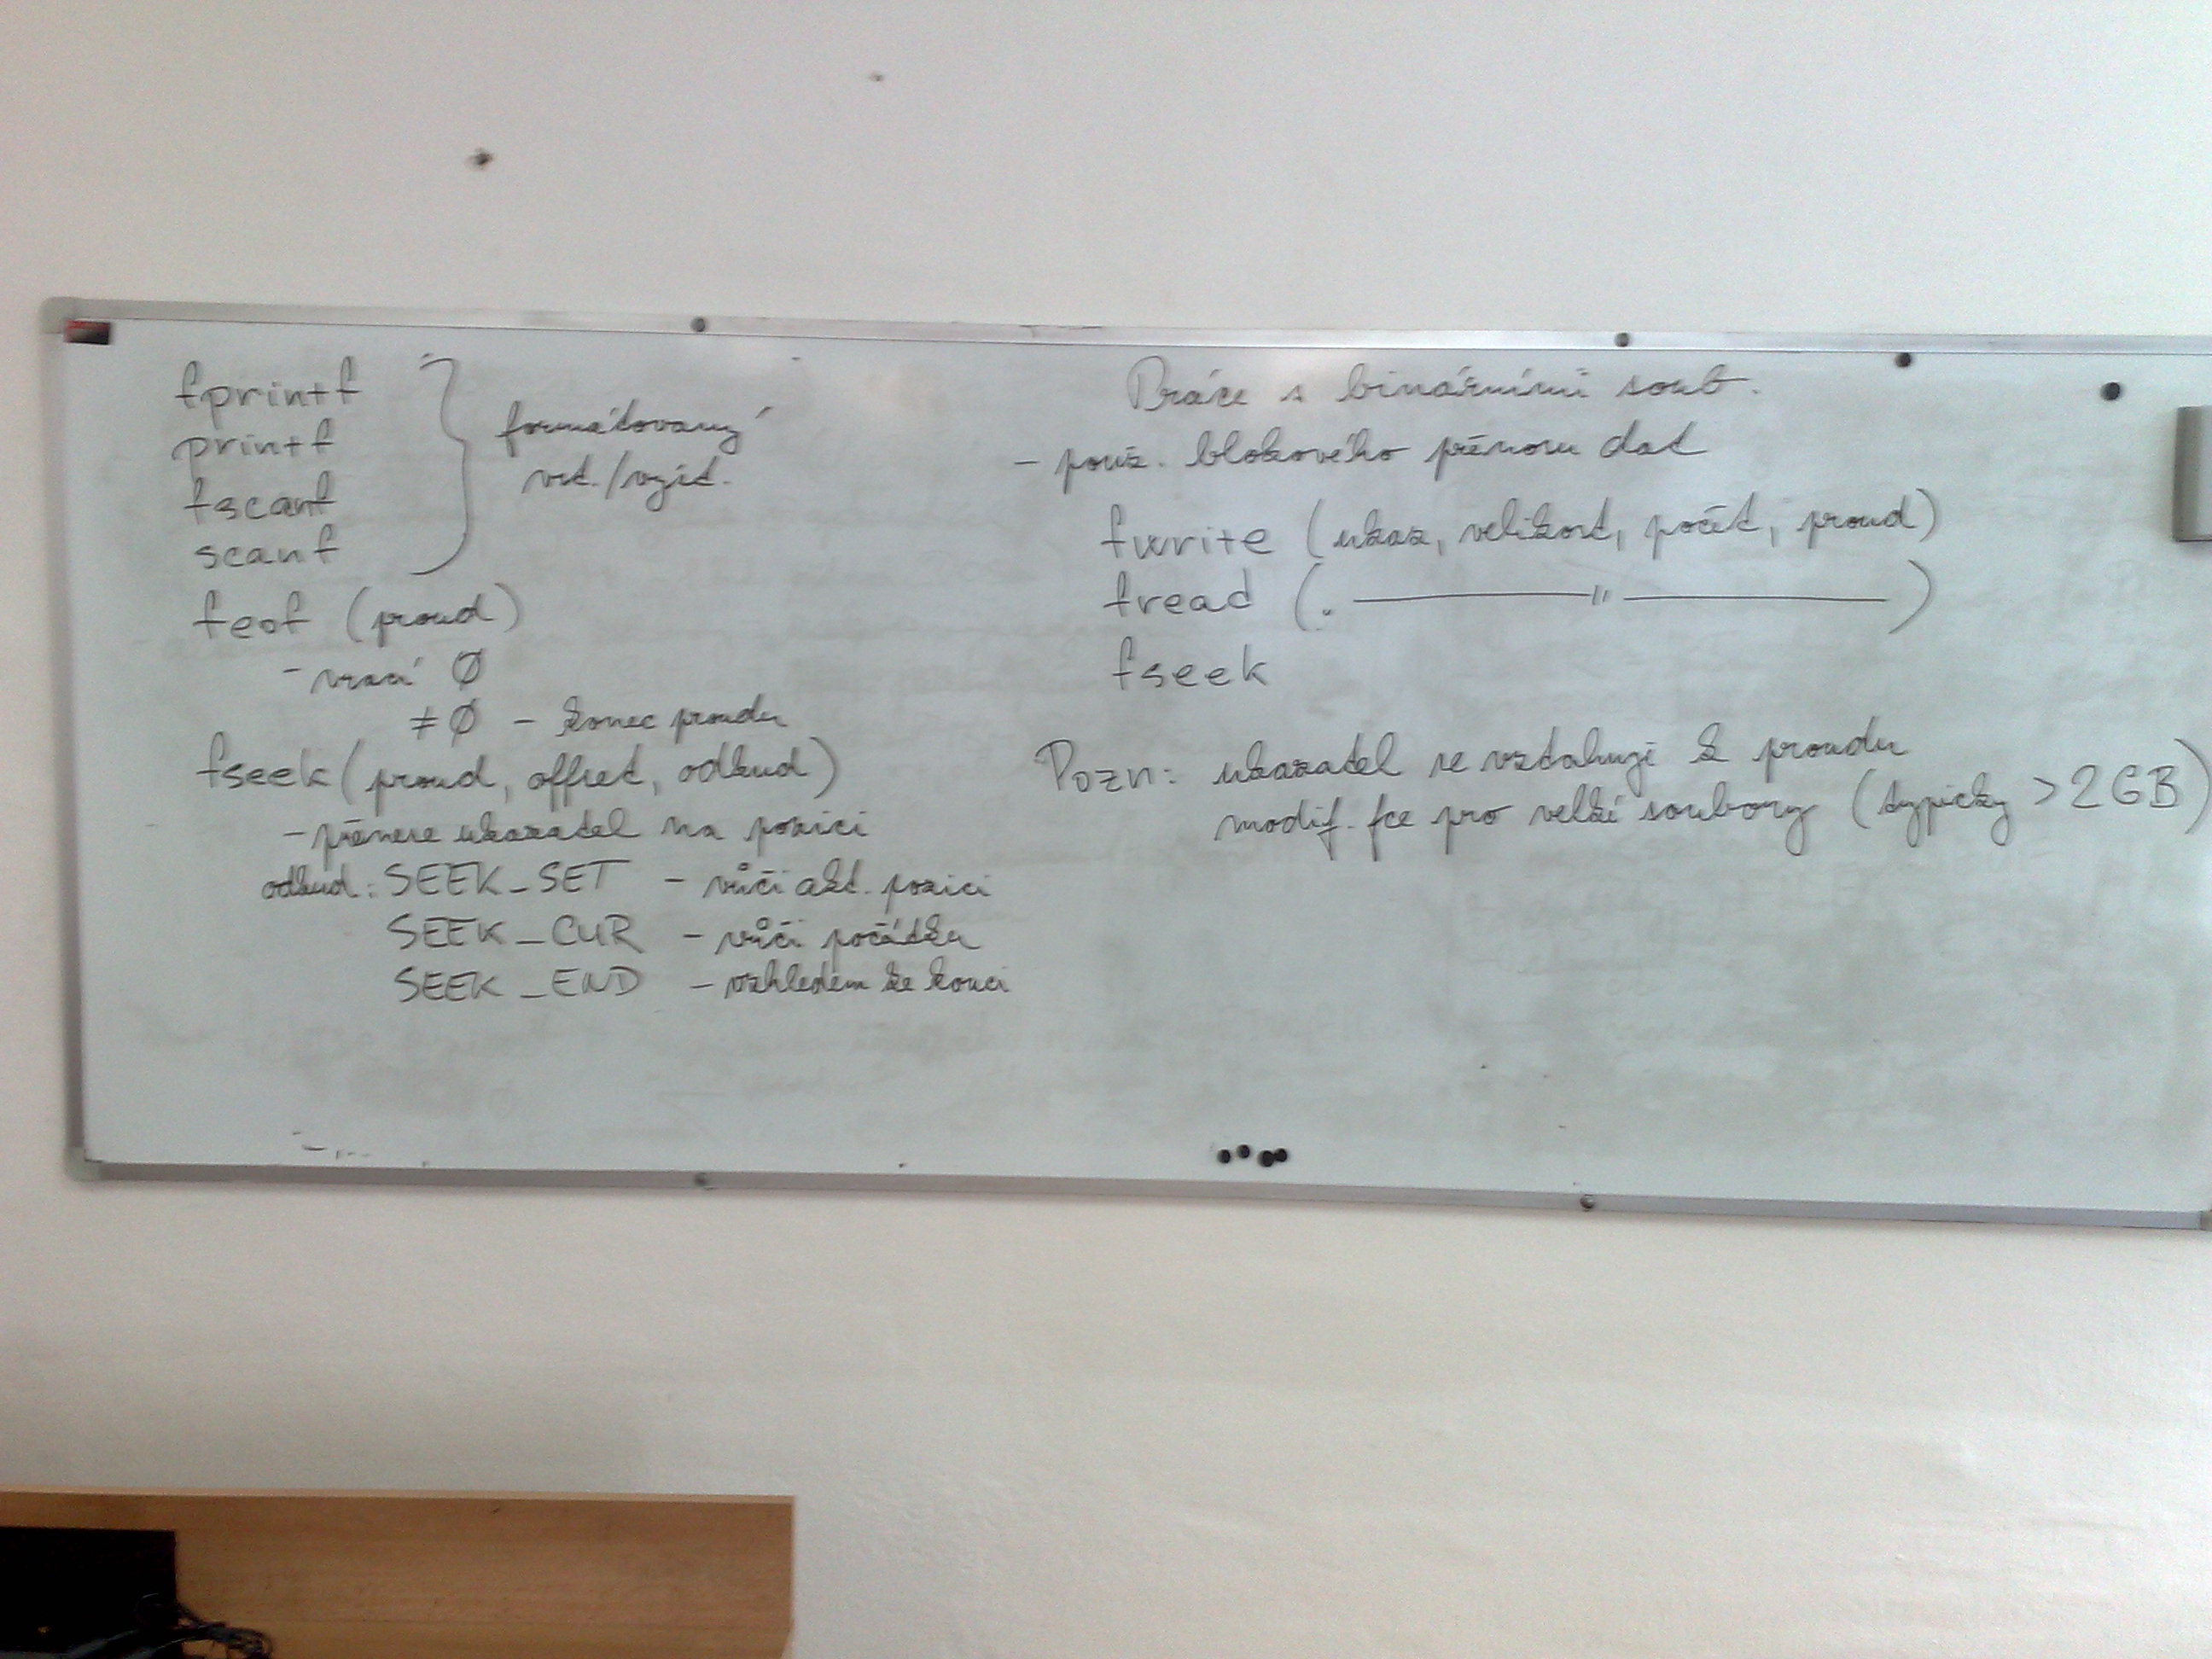 fprintf
printf
fscanf
scanf
formátovaný
vst./výst.
feof (proud)
- vrací Ø
≠ Ø - konec proudu
fseek (proud, offset, odkud)
- přenese ukazatel na pozici
odkud: SEEK_SET - vůči akt. pozici
SEEK_CUR - vůči počátku
SEEK_END - vzhledem ke konci
Práce s binárními soub.
- použ. blokového přenosu dat
fwrite (ukaz, velikost, počet, proud)
fread (. — " — )
fseek
Pozn: ukazatel se vztahuje k proudu
modif. fce pro velké soubory (typicky > 2GB)